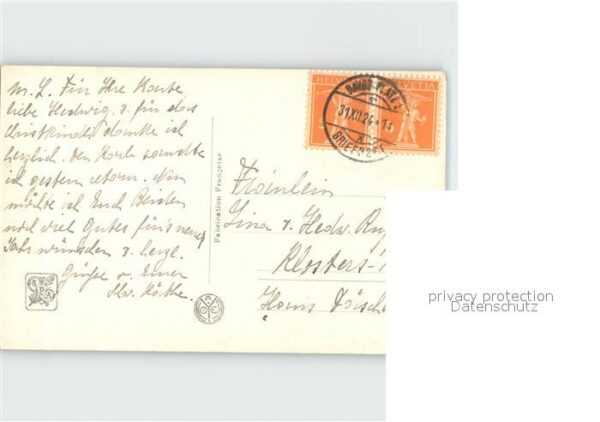 M. L. Für Ihre Karte,
liebe Hedwig, u. für das
Christkindli danke ich
herzlich. Den Korb sandte
ich gestern retour. Nun
möchte ich Euch Beiden
noch viel Gutes für's neue
Jahr wünschen u. herzl.
Grüsse v. Eurer
Schw. Käthe.
Fabrication Française
HELVETIA HELVETIA
DAVOS-PLATZ 1
31.XII.24-11
BRIEFPOST
Fräulein
Lina u. Hedw.
Klosters-
Haus
privacy protection
Datenschutz